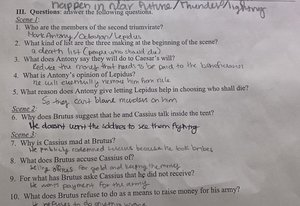 happen in near future / Thunder / lightning
III. Questions: answer the following questions.
Scene 1:
1. Who are the members of the second triumvirate?
Mark Antony / Octavian / Lepidus
2. What kind of list are the three making at the beginning of the scene?
a death list (people who should die)
3. What does Antony say they will do to Caesar's will?
Reduce the money that needs to be paid to the beneficiaries
4. What is Antony's opinion of Lepidus?
He will eventually remove him from rule
5. What reason does Antony give letting Lepidus help in choosing who shall die?
So they can't blame murders on him
Scene 2:
6. Why does Brutus suggest that he and Cassius talk inside the tent?
He doesn't want the soldiers to see them fighting
Scene 3:
7. Why is Cassius mad at Brutus?
He publicly condemned because he took bribes
8. What does Brutus accuse Cassius of?
Selling offices for gold and keeping the money
9. For what has Brutus asked Cassius that he did not receive?
He wants payment for the army
10. What does Brutus refuse to do as a means to raise money for his army?
He refuses to do anything